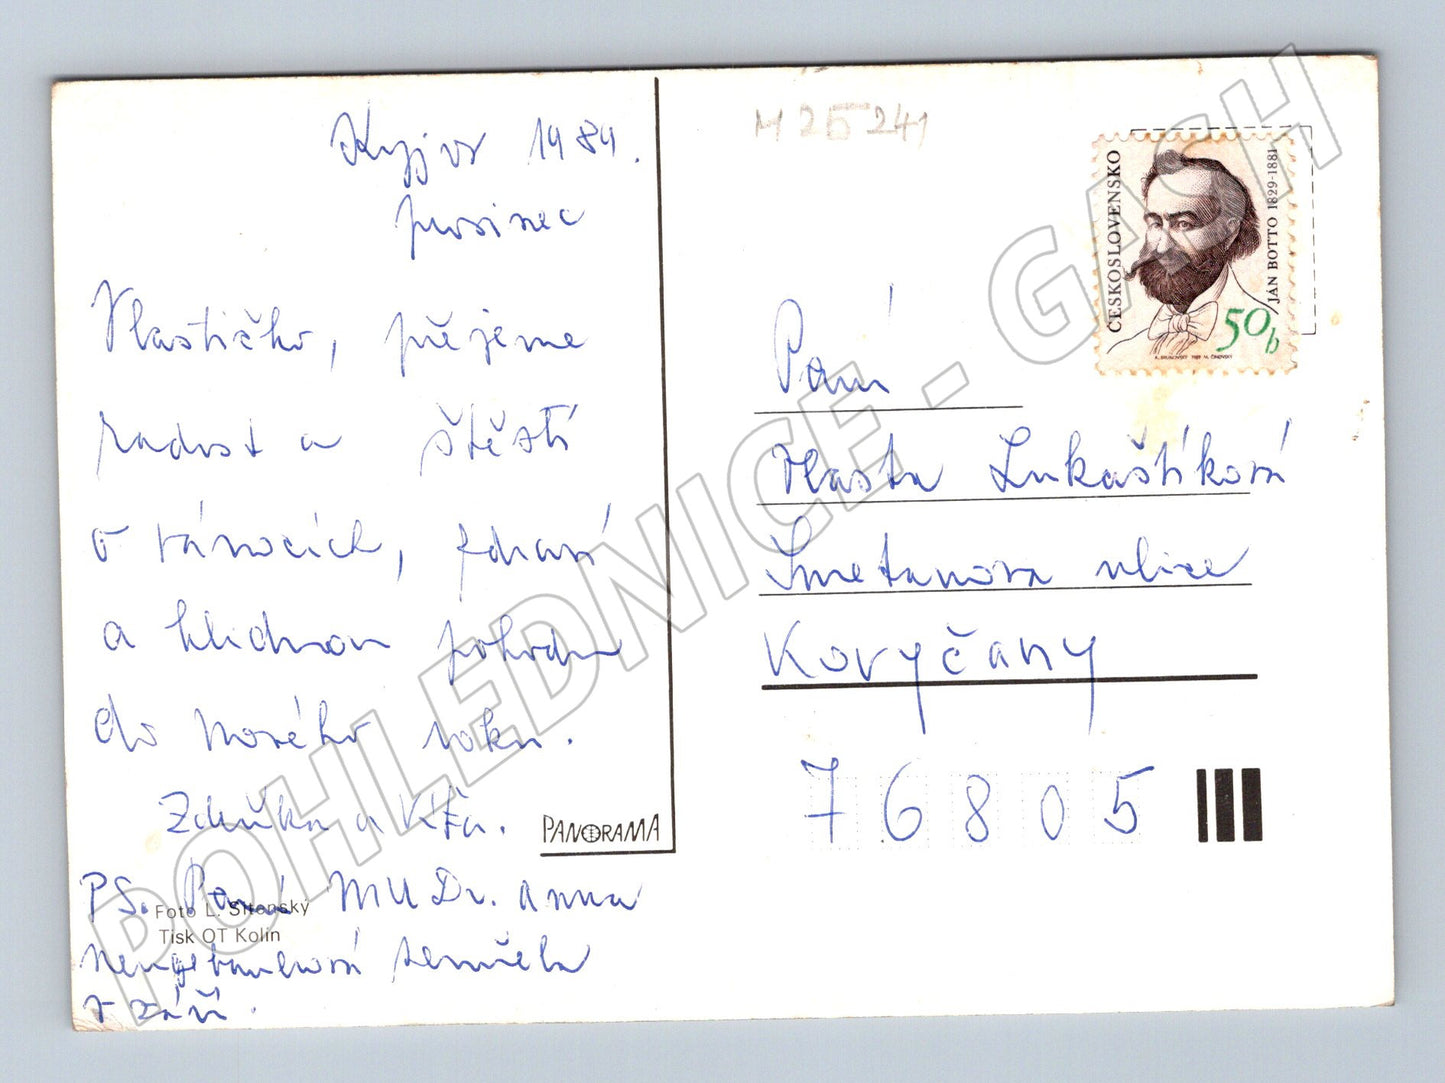 Kyjov 1989.
prosinec
Vlastičko, přejeme
radost a štěstí
o vánocích, zdraví
a klidnou pohodu
do nového roku.
Zdeňka a
PANORAMA
PS. Paní MUDr. Anna
Foto L. Sitenský
Tisk OT Kolín
zemřela
v září.
M 25 241
ČESKOSLOVENSKO
JÁN BOTTO 1829-1881
50 h
Paní
Vlasta Lukaštíková
Smetanova ulice
Koryčany
76805
POHLEDNICE - GASH